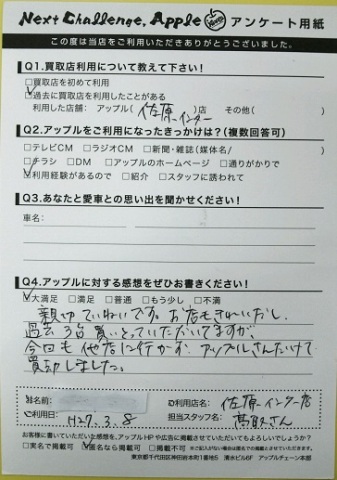 Next Challenge, Apple アンケート用紙
この度は当店をご利用いただきありがとうございました。
Q1.買取店利用について教えて下さい！
□買取店を初めて利用
☑過去に買取店を利用したことがある
利用した店舗： アップル（佐原インター）店 その他（ ）
Q2.アップルをご利用になったきっかけは？（複数回答可）
□テレビCM □ラジオCM □新聞・雑誌（媒体名/ ）
□チラシ □DM □アップルのホームページ □通りがかりで
☑利用経験があるので □紹介 □スタッフに誘われて
Q3.あなたと愛車との思い出を聞かせください！
車名：
Q4.アップルに対する感想をぜひお書きください！
☑大満足 □満足 □普通 □もう少し □不満
親切ていねいです。お店もきれいだし、
過去3台買いとっていただいてますが
今回も他店に行かず、アップルさんだけで
買却しました。
お名前:
ご利用店名: 佐原インター店
ご利用日: H27.3.8
担当スタッフ名: 高取さん
お客様に書いていただいた感想を、アップルHPや広告に掲載させていただいてもよろしいでしょうか？
□実名で掲載可 ☑匿名なら掲載可 □掲載不可
※ご記入がない場合は匿名での掲載可とさせていただきます。
東京都千代田区神田岩本町1番地5 清水ビル6F アップルチェーン本部